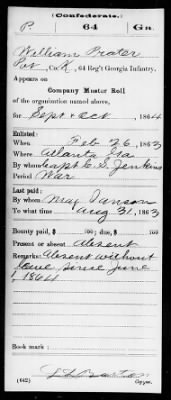 (Confederate.)
P. 64 Ga.
William Prater
Pvt, Co. K, 64 Reg't Georgia Infantry.
Appears on
Company Muster Roll
of the organization named above,
for Sept & Oct, 1864
Enlisted:
When Feb 26, 1863
Where Atlanta Ga
By whom Capt C. S. Jenkins
Period War
Last paid:
By whom Maj
To what time Aug 31, 1863
Bounty paid, $ 100; due, $ 100
Present or absent Absent
Remarks: Absent without
leave since June
1, 1864
Book mark:
(642) Copyist.